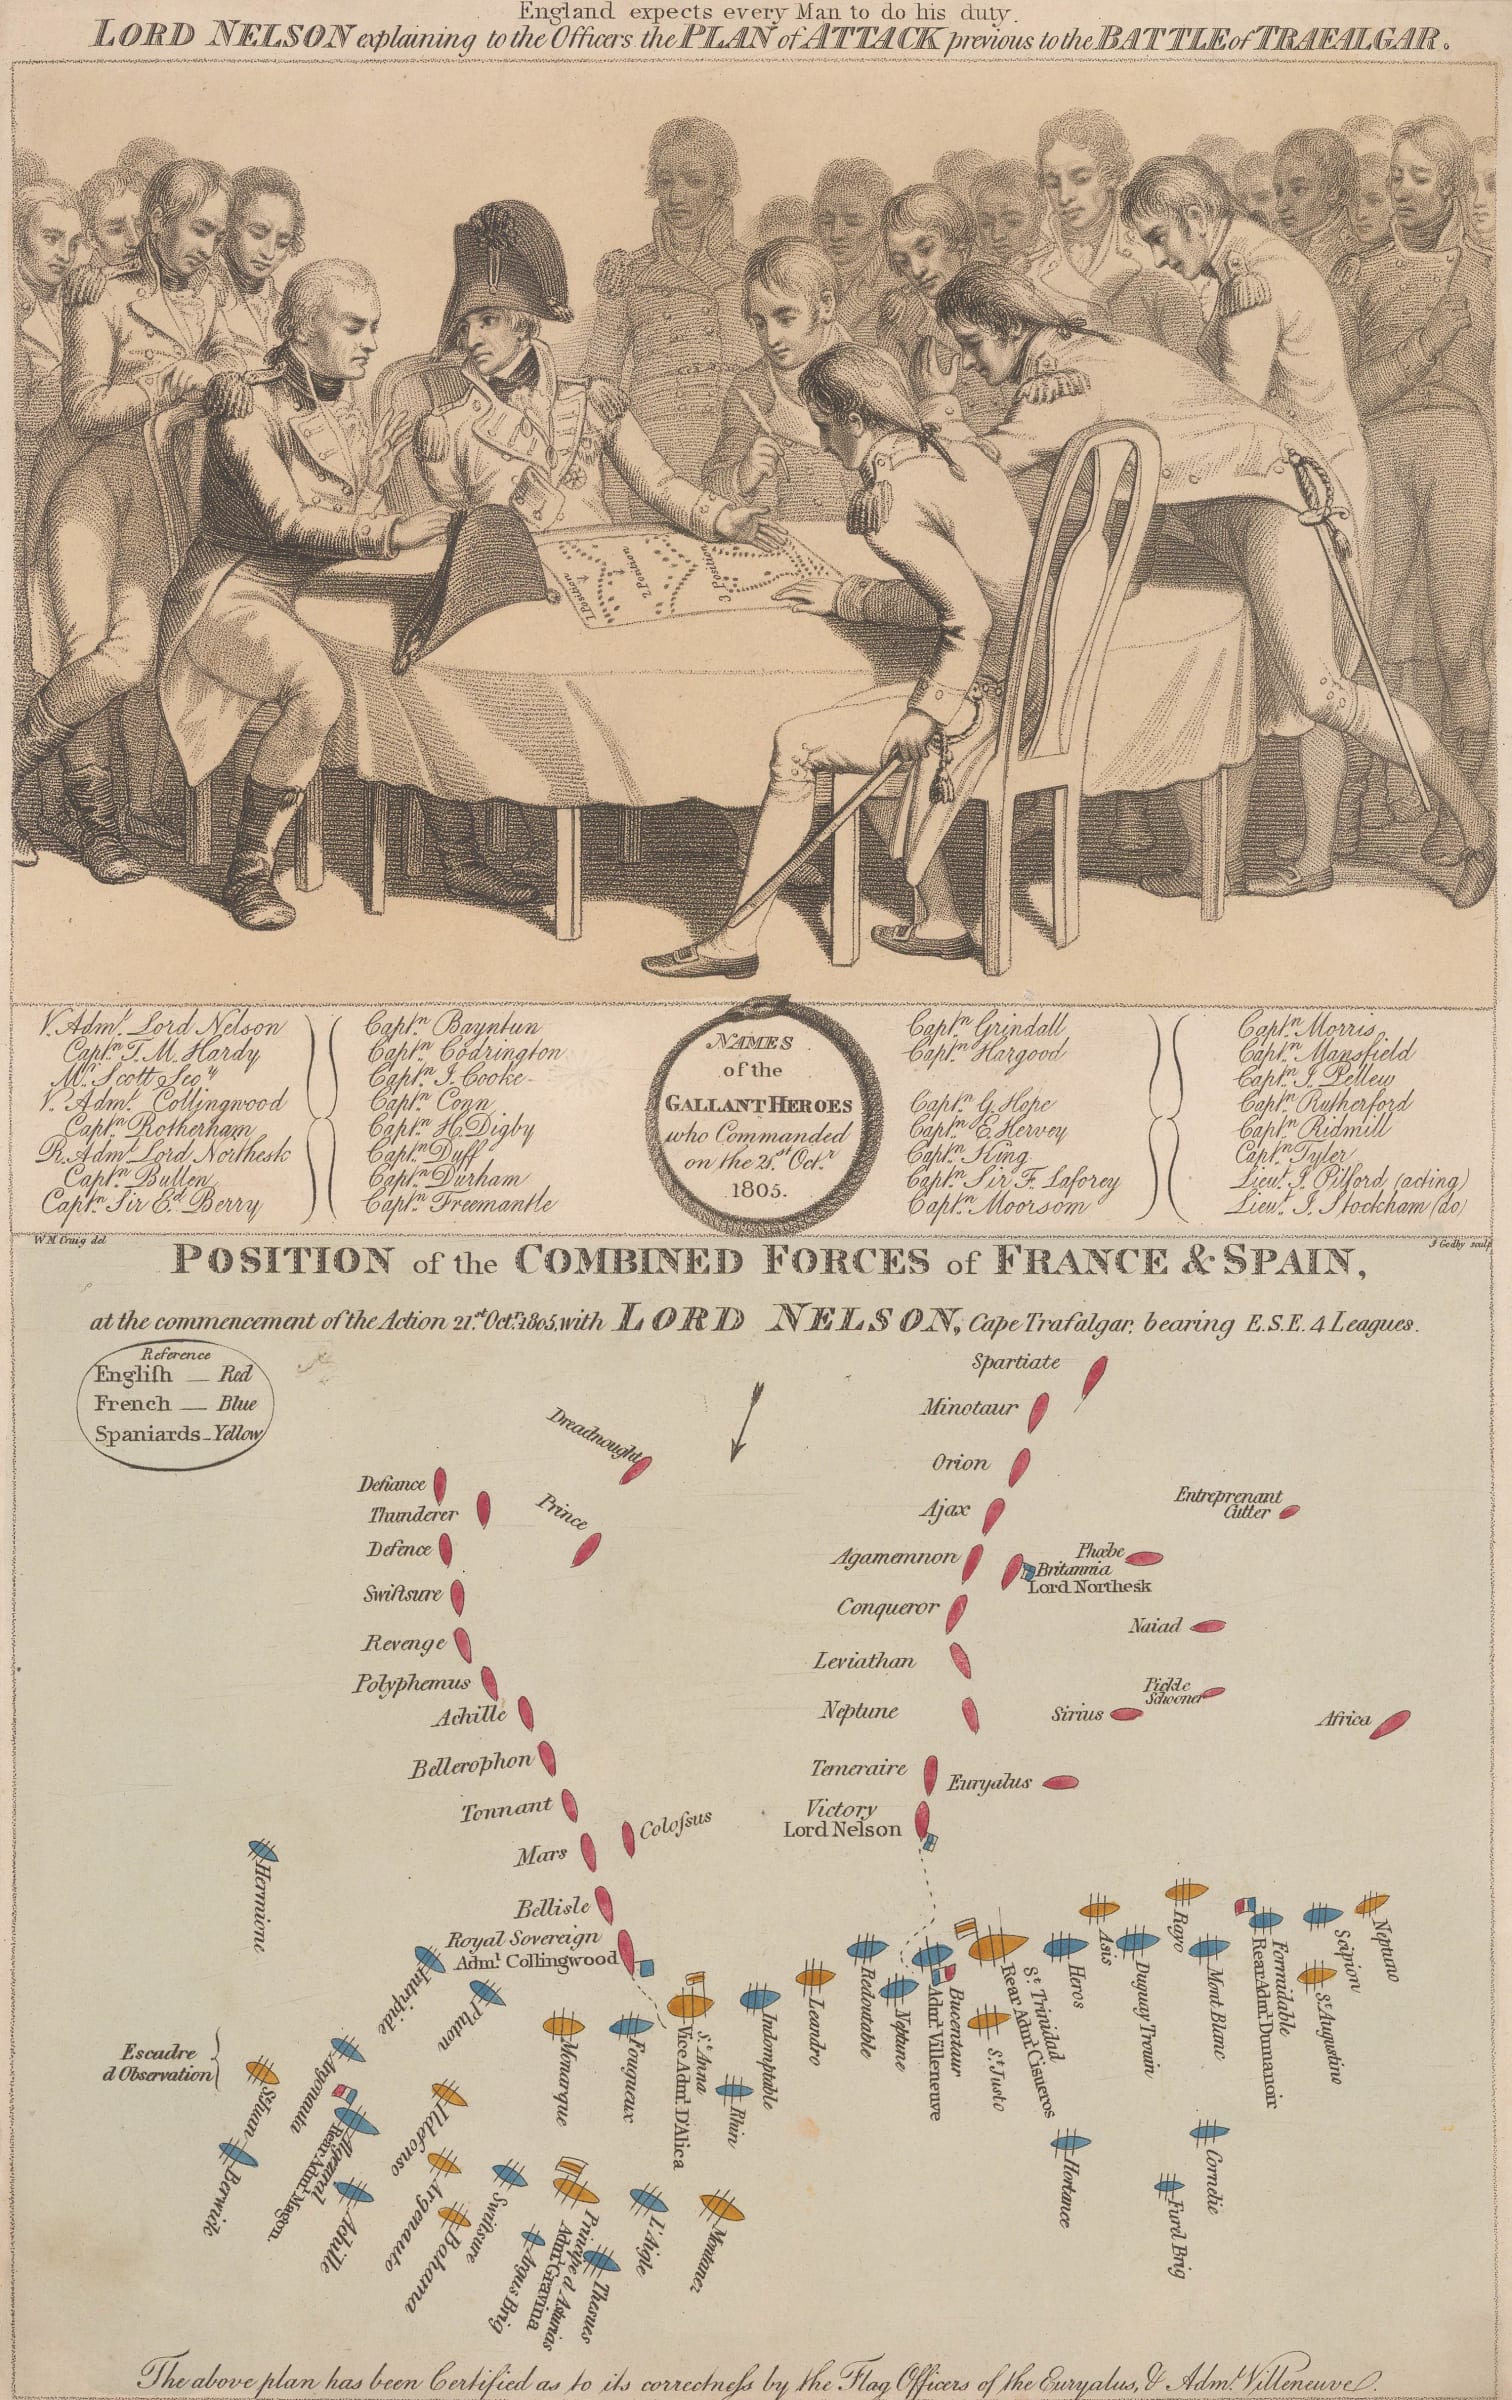 England expects every Man to do his duty.
LORD NELSON explaining to the Officers the PLAN of ATTACK previous to the BATTLE of TRAFALGAR.
1 Position
2 Position
3 Position
V. Admˡ. Lord Nelson
Captⁿ. T. M. Hardy
Mʳ. Scott Secʸ
V. Admˡ. Collingwood
Captⁿ. Rotherham
R. Admˡ. Lord Northesk
Captⁿ. Bullen
Captⁿ. Sir Eᵈ. Berry
Captⁿ. Bayntun
Captⁿ. Codrington
Captⁿ. J. Cooke
Captⁿ. Conn
Captⁿ. H. Digby
Captⁿ. Duff
Captⁿ. Durham
Captⁿ. Freemantle
NAMES
of the
GALLANT HEROES
who Commanded
on the 21.ˢᵗ Octʳ.
1805.
Captⁿ. Grindall
Captⁿ. Hargood
Captⁿ. G. Hope
Captⁿ. E. Hervey
Captⁿ. King
Captⁿ. Sir F. Laforey
Captⁿ. Moorsom
Captⁿ. Morris
Captⁿ. Mansfield
Captⁿ. J. Pellew
Captⁿ. Rutherford
Captⁿ. Ridmill
Captⁿ. Tyler
Lieuᵗ. J. Pilford (acting)
Lieuᵗ. J. Stockham (do)
W. M. Craig del
J Godby sculp
POSITION of the COMBINED FORCES of FRANCE & SPAIN,
at the commencement of the Action 21.ˢᵗ Octʳ. 1805, with LORD NELSON, Cape Trafalgar, bearing E.S.E. 4 Leagues.
Reference
Engliſh — Red
French — Blue
Spaniards - Yellow
Spartiate
Minotaur
Dreadnought
Orion
Defiance
Entreprenant
Cutter
Thunderer
Prince
Ajax
Defence
Agamemnon
Phœbe
Britannia
Lord Northesk
Swiftsure
Conqueror
Naiad
Revenge
Leviathan
Polyphemus
Pickle
Schooner
Achille
Neptune
Sirius
Africa
Bellerophon
Temeraire
Euryalus
Tonnant
Coloſsus
Victory
Lord Nelson
Mars
Hermione
Bellisle
Royal Sovereign
Admˡ. Collingwood
Intripide
Pluton
Monarque
Fougueux
Sᵗ. Anna
Vice Admˡ. D'Alica
Indomptable
Rhin
Leandro
Redoutable
Neptune
Bucentaur
Admˡ. Villeneuve
Sᵗ. Trinidad
Rear Admˡ. Cisneros
Sᵗ. Justo
Heros
Asis
Duguay Trouin
Rayo
Mont Blanc
Formidable
Rear Admˡ. Dumanoir
Scipion
Sᵗ. Augustino
Neptuno
Escadre
d Observation
Argonauta
Sᵗ. Juan
Berwick
Algeziral
Rear Admˡ. Magon.
Achille
Ildefonso
Argonauto
Bahama
Swiftsure
Argus Brig
Principe d. Asturias
Admˡ. Gravina
Thesus
L'Aigle
Montanez
Hortance
Cornelie
Furet Brig
The above plan has been Certified as to its correctneſs by the Flag Officers of the Euryalus, & Admˡ. Villeneuve.